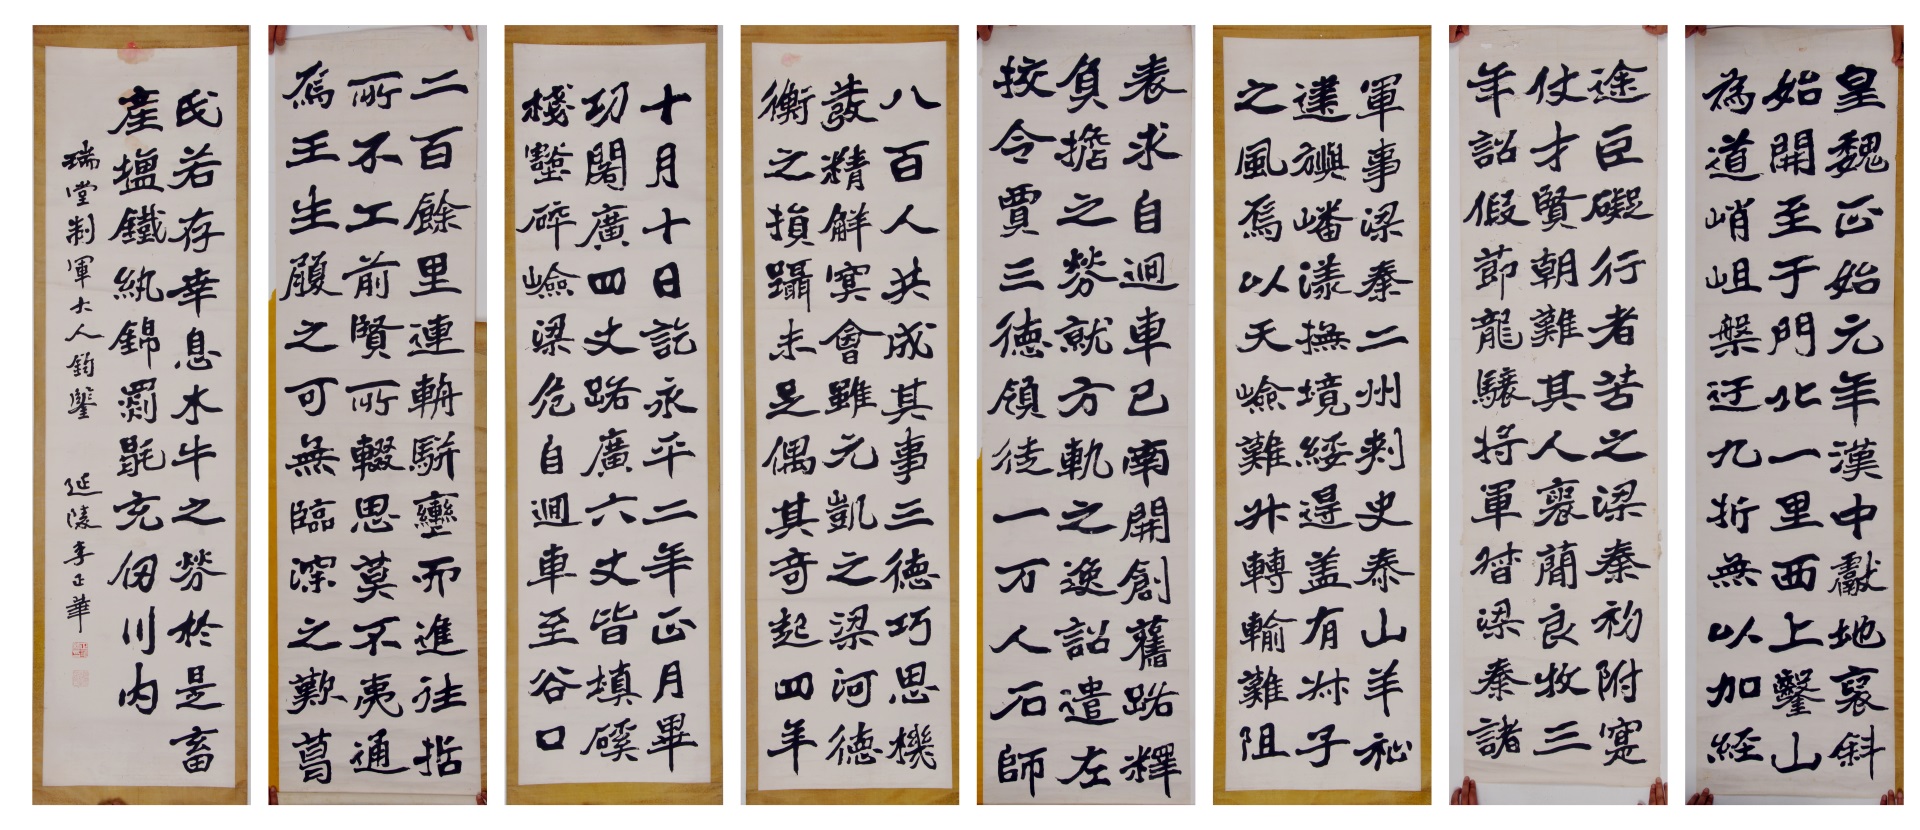 皇魏正始元年漢中獻地襃斜
始開至于門北一里西上鑿山
為道峭岨槃迂九折無以加經
途巨礙行者苦之梁秦初附寔
仗才賢朝難其人襃蕳良牧三
年詔假節龍驤将軍督梁秦諸
軍事梁秦二州刺史泰山羊祉
建旟嶓漾撫境綏邊盖有叔子
之風焉以天嶮難升轉輸難阻
表求自迴車已南開創舊路釋
負擔之勞就方軌之逸詔遣左
校令賈三德領徒一万人石師
八百人共成其事三德巧思機
發精解冥會雖元凱之梁河德
衡之損躡未足偶其奇起四年
十月十日訖永平二年正月畢
功閣廣四丈路廣六丈皆填磎
棧壑砰嶮梁危自迴車至谷口
二百餘里連輈駢轡而進往哲
所不工前賢所輟思莫不夷通
焉王生履之可無臨深之歎葛
氏若存幸息木牛之勞於是畜
產塩鐵紈錦罽毼充仞川内
瑞堂制軍大人鈞鑒 延陵李正華